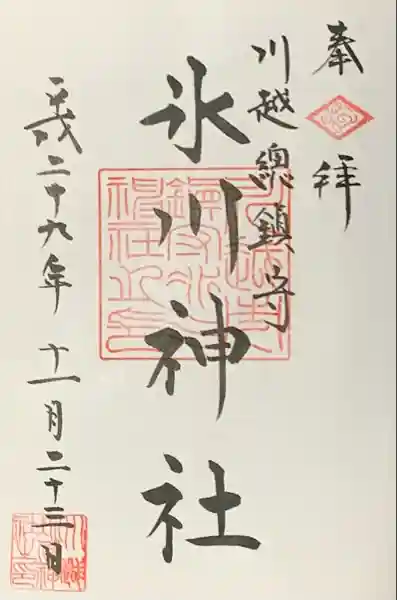 奉拝
川越總鎮守
氷川神社
平成二十九年十一月二十三日